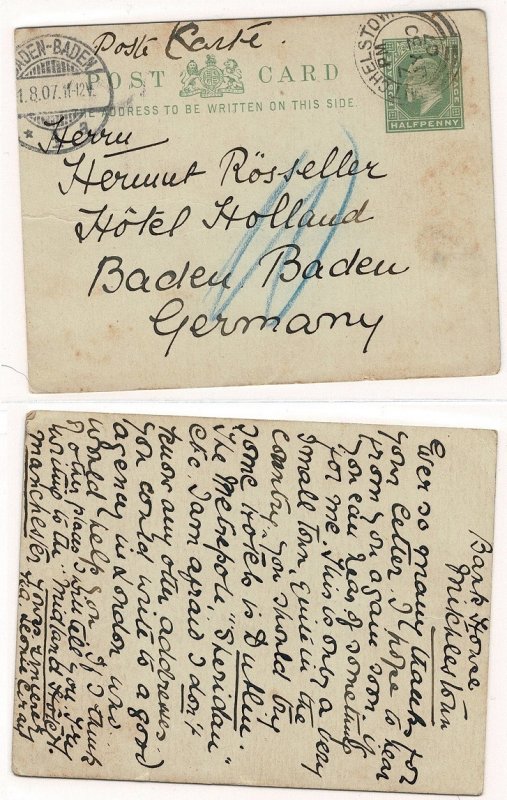 Poste Carte.
POST CARD
THE ADDRESS TO BE WRITTEN ON THIS SIDE.
BADEN-BADEN
1.8.07. 11-12V.
MITCHELSTOWN
PM
07
HALFPENNY
Herrn
Hermut Rösseller
Hôtel Holland
Baden Baden
Germany
Bank House
Mitchelstown
Ever so many thanks for
your letter. I hope to hear
from you again soon. If
you can hear of something
for me. This is only a very
small town, quite in the
country. You should try
some Hotels in Dublin
"The Metropole" "Sheridan"
etc. I am afraid I don't
know any other addresses
You could write to a good
agency in London who
would help you. If I think
of other places I will tell you. Try
writing to the "Midland Hotel"
Manchester. Yours sincerely